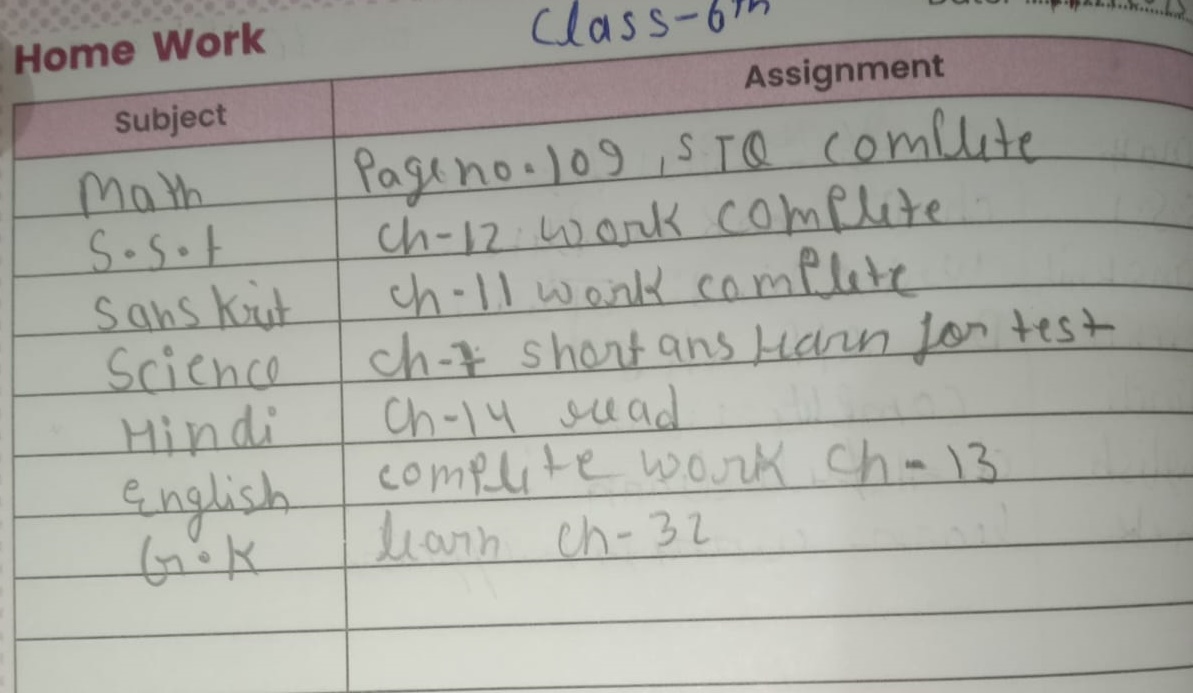 Class-6th
Home Work
Subject Assignment
Math Page no. 109, STQ complete
S.S.t ch-12 work complete
Sanskrit ch-11 work complete
Science ch-7 short ans learn for test
Hindi Ch-14 read
English complete work ch-13
G.K learn ch-32